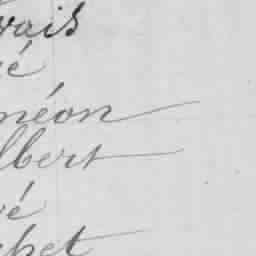 vais
é
méon
lbert
vé
chet